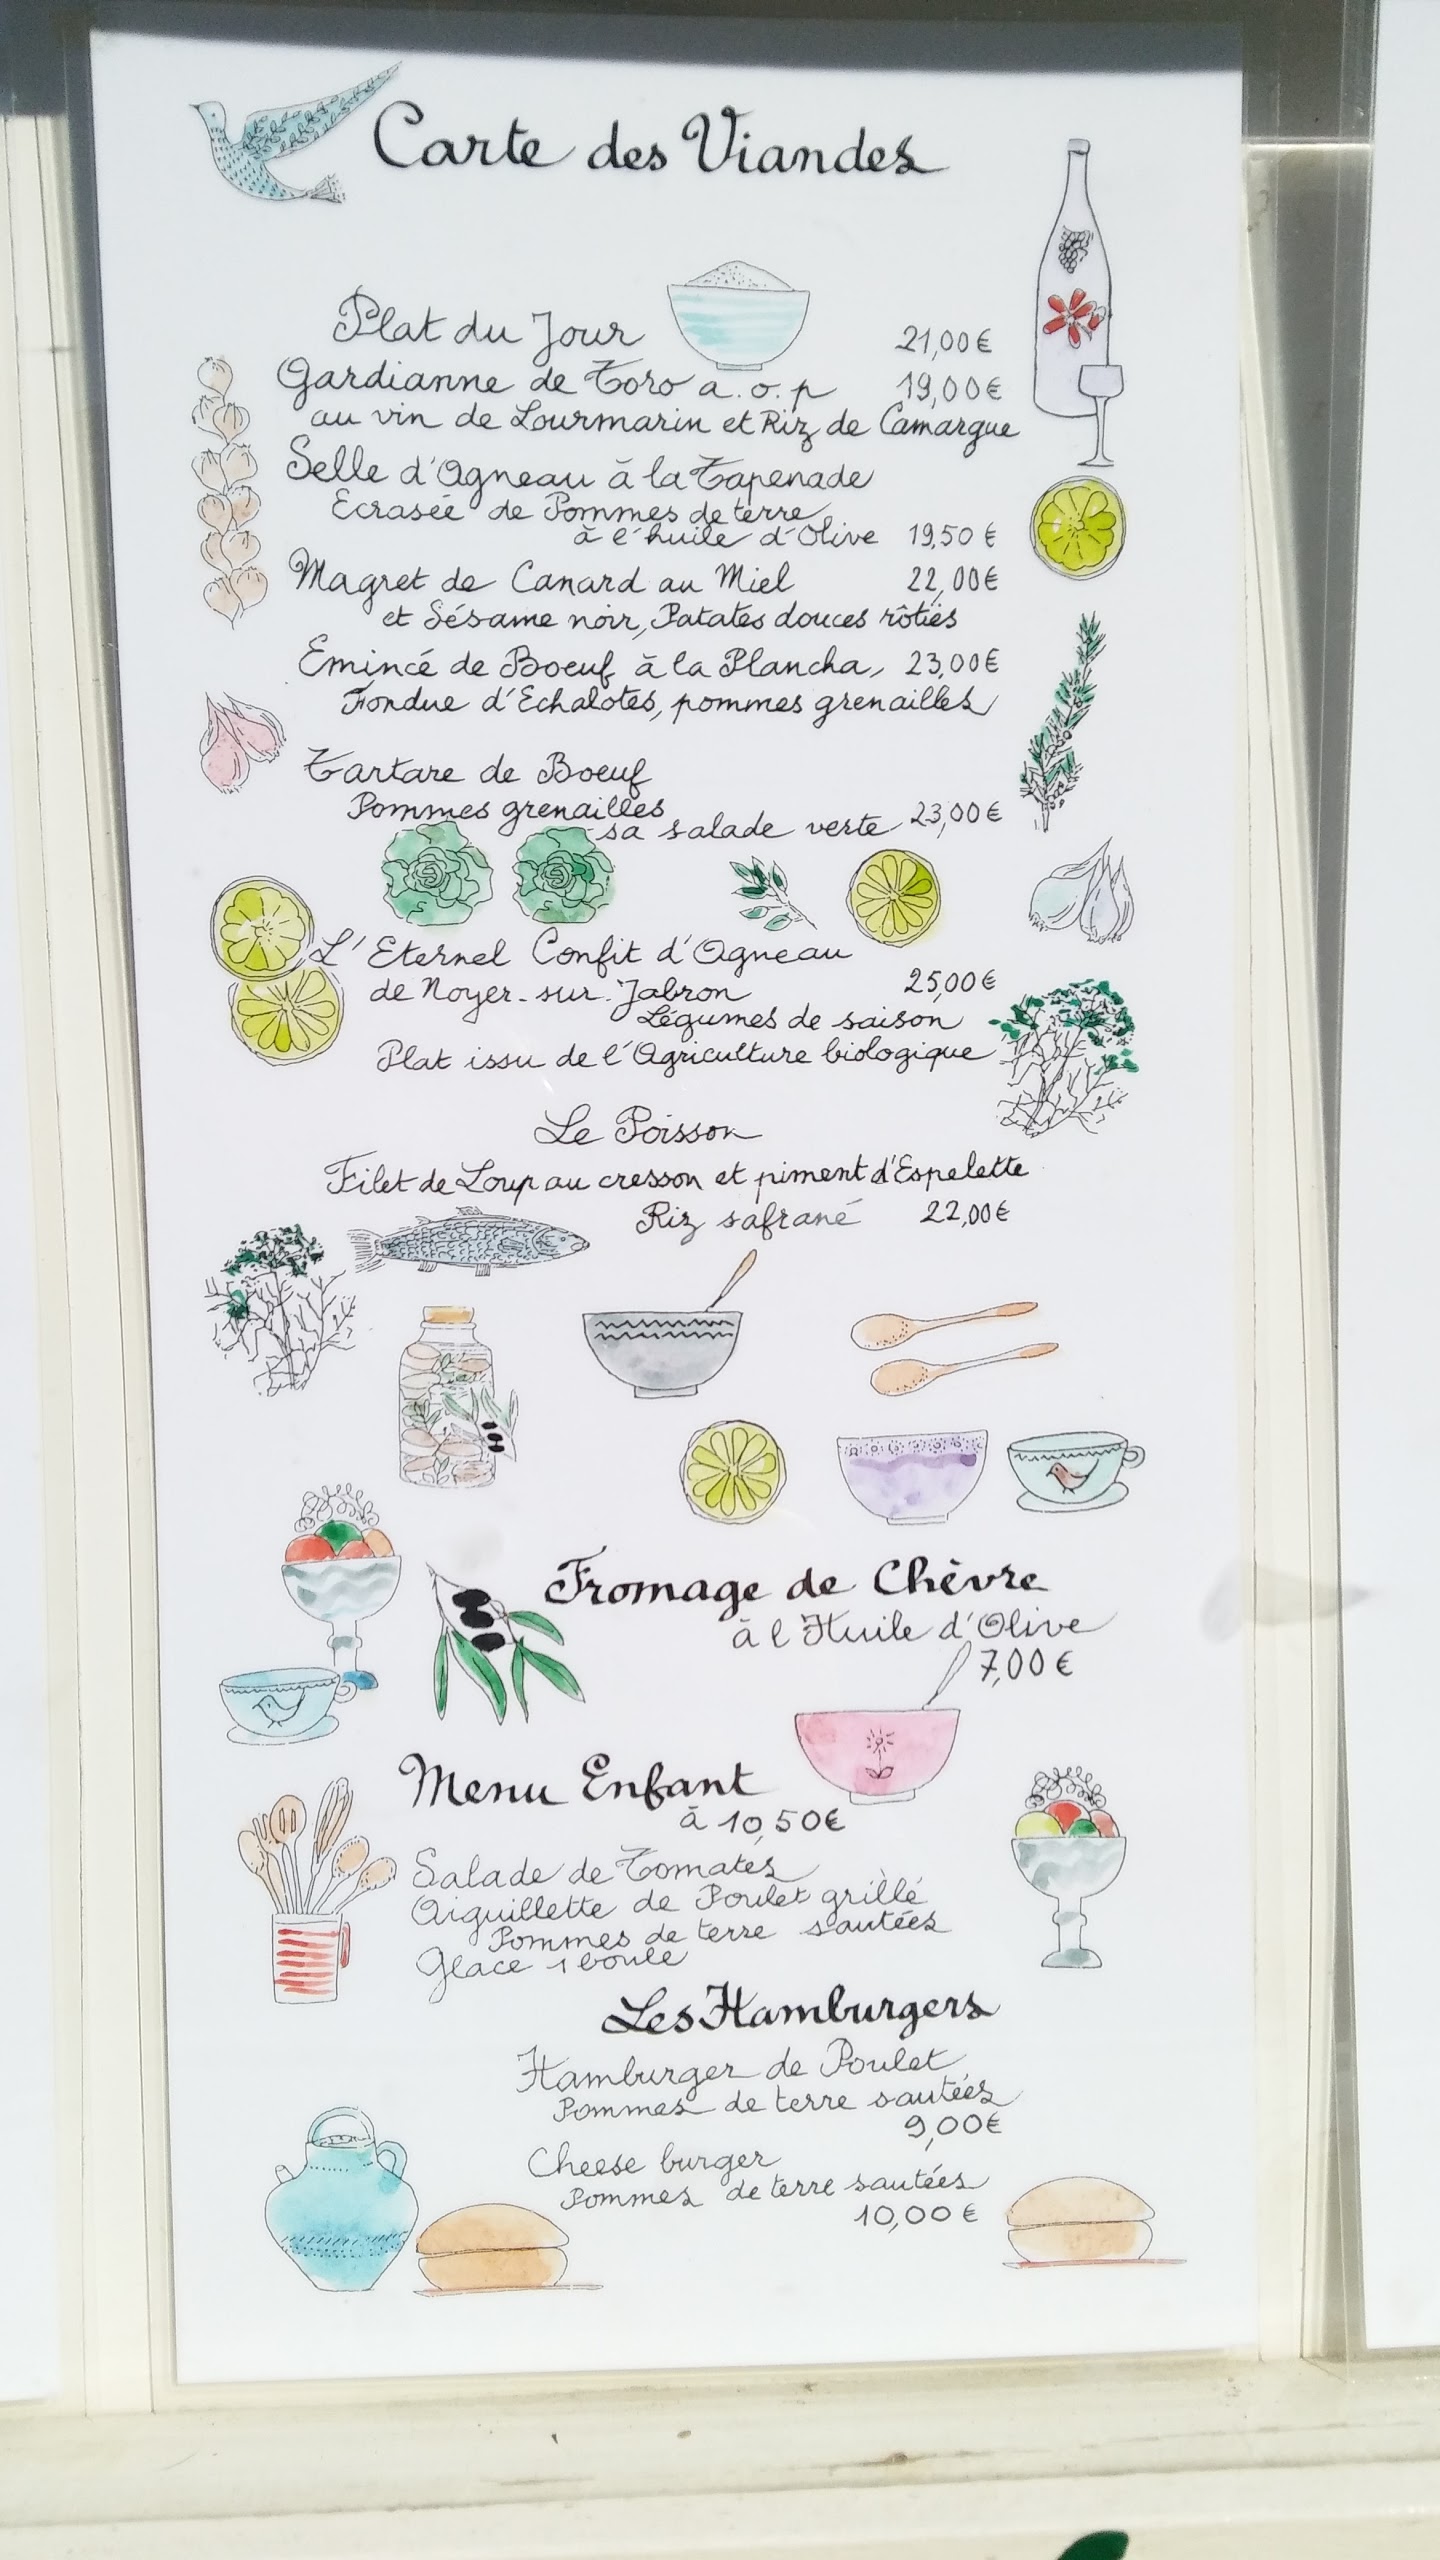 Carte des Viandes
Plat du Jour 21,00€
Gardianne de Toro a.o.p 19,00€
au vin de Lourmarin et Riz de Camargue
Selle d'Agneau à la Tapenade
Ecrasée de Pommes de terre
à l'huile d'Olive 19,50€
Magret de Canard au Miel 22,00€
et Sésame noir, Patates douces rôties
Emincé de Boeuf à la Plancha, 23,00€
Fondue d'Echalotes, pommes grenailles
Tartare de Boeuf
Pommes grenailles
sa salade verte 23,00€
L'Eternel Confit d'Agneau
de Noyer-sur-Jabron 25,00€
Légumes de saison
Plat issu de l'Agriculture biologique
Le Poisson
Filet de Loup au cresson et piment d'Espelette
Riz safrané 22,00€
Fromage de Chèvre
à l'Huile d'Olive
7,00€
Menu Enfant
à 10,50€
Salade de Tomates
Aiguillette de Poulet grillé
Pommes de terre sautées
Glace 1 boule
Les Hamburgers
Hamburger de Poulet
Pommes de terre sautées
9,00€
Cheese burger
Pommes de terre sautées
10,00€